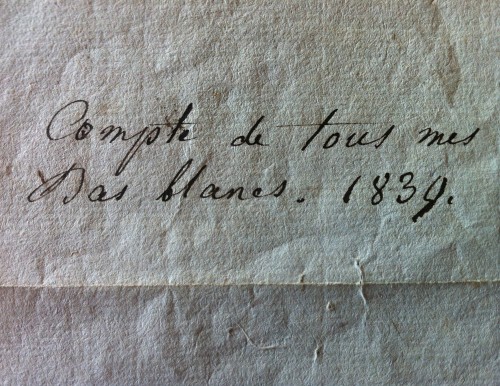 Compte de tous mes
Bas blancs. 1839.